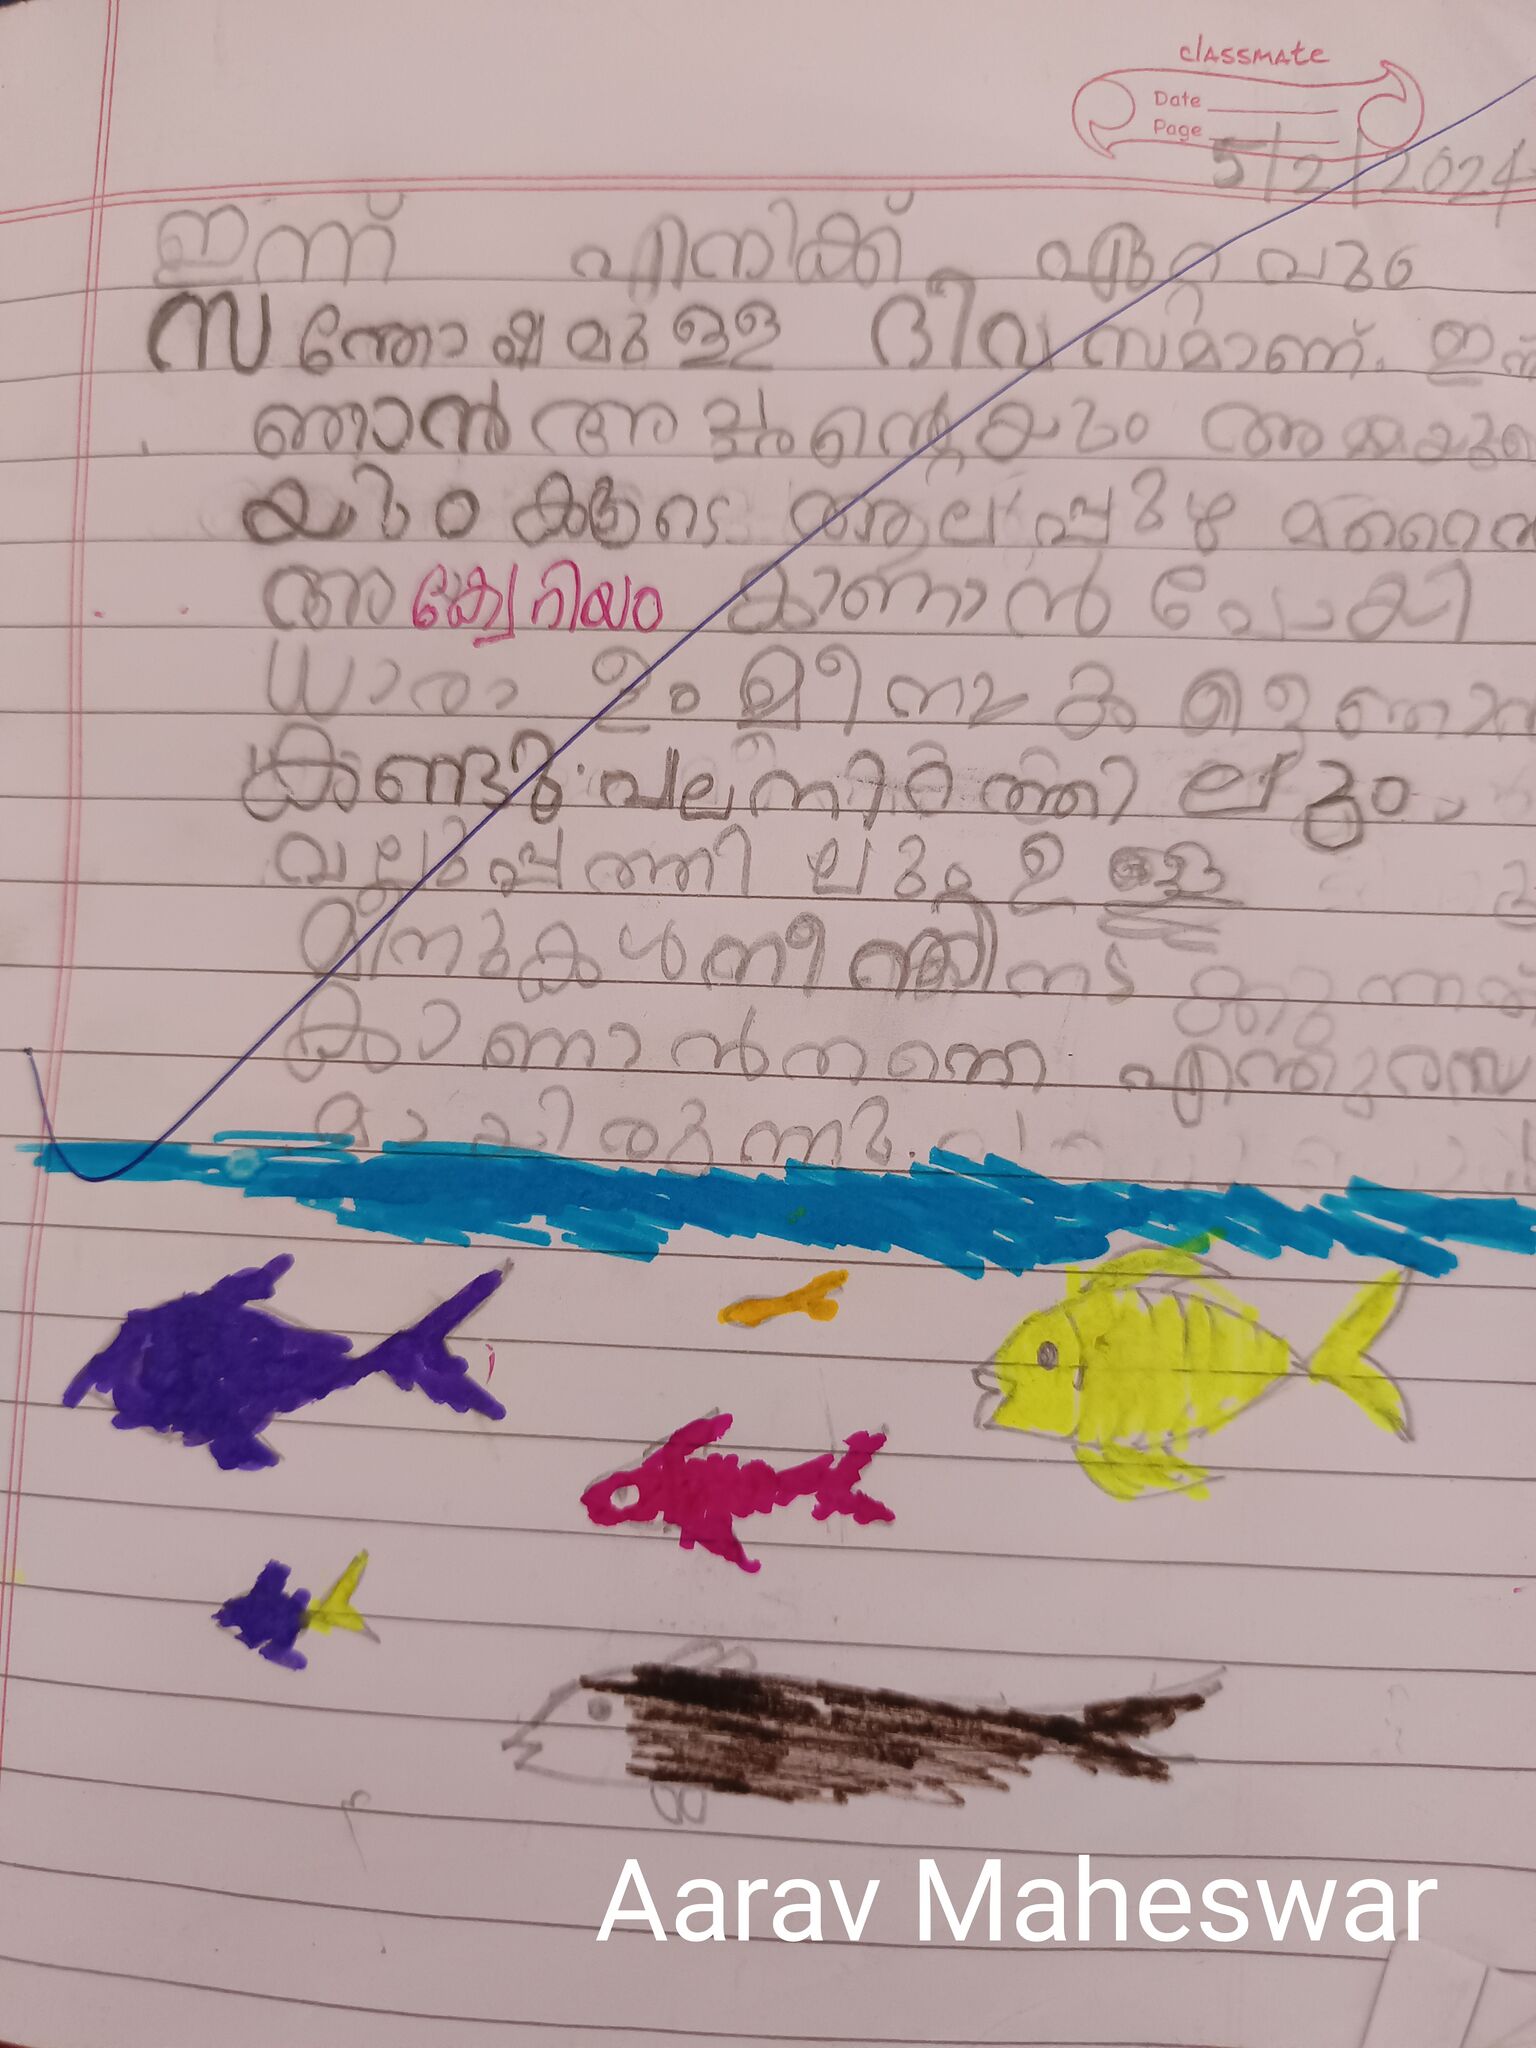 classmate
Date
Page
5/2/2024
ഇന്ന് എനിക്ക് ഏറ്റവും
സന്തോഷമുള്ള ദിവസമാണ്. ഇന്ന്
ഞാൻ അച്ഛന്റെയും
യും കൂടെ ആലപ്പുഴ
അക്വേറിയം കാണാൻ പോയി
ധാരാളം മീനുകളെ ഞാൻ
കണ്ടു. പല നിറത്തിലും
വലുപ്പത്തിലും ഉള്ള
മീനുകൾ നീങ്ങി നടക്കുന്നത്
കാണാൻ തന്നെ
മായിരുന്നു.
Aarav Maheswar